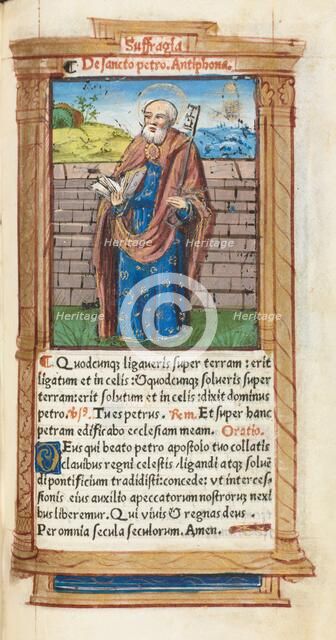 Suffragia
De sancto petro. Antiphona.
Quodcunqꝫ ligaveris super terram : erit
ligatum et in celis : & quodcunqꝫ solveris super
terram: erit solutum et in celis : dixit dominus
petro. Vs. Tu es petrus. Rem. Et super hanc
petram edificabo ecclesiam meam. Oratio.
Deus qui beato petro apostolo tuo collatis
clavibus regni celestis / ligandi atqꝫ solvē
di pontificium tradidisti: concede: vt interces
sionis eius auxilio a peccatorum nostrorūꝫ nexi
bus liberemur. Qui vivis & regnas deus .
Per omnia secula seculorum. Amen.
Heritage
Heritage
Heritage
Heritage
Heritage
Heritage